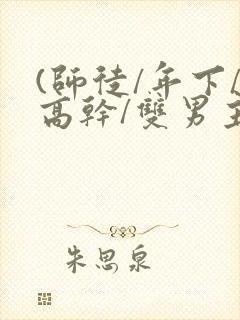 (師徒/年下/
高幹/雙男主
朱思泉